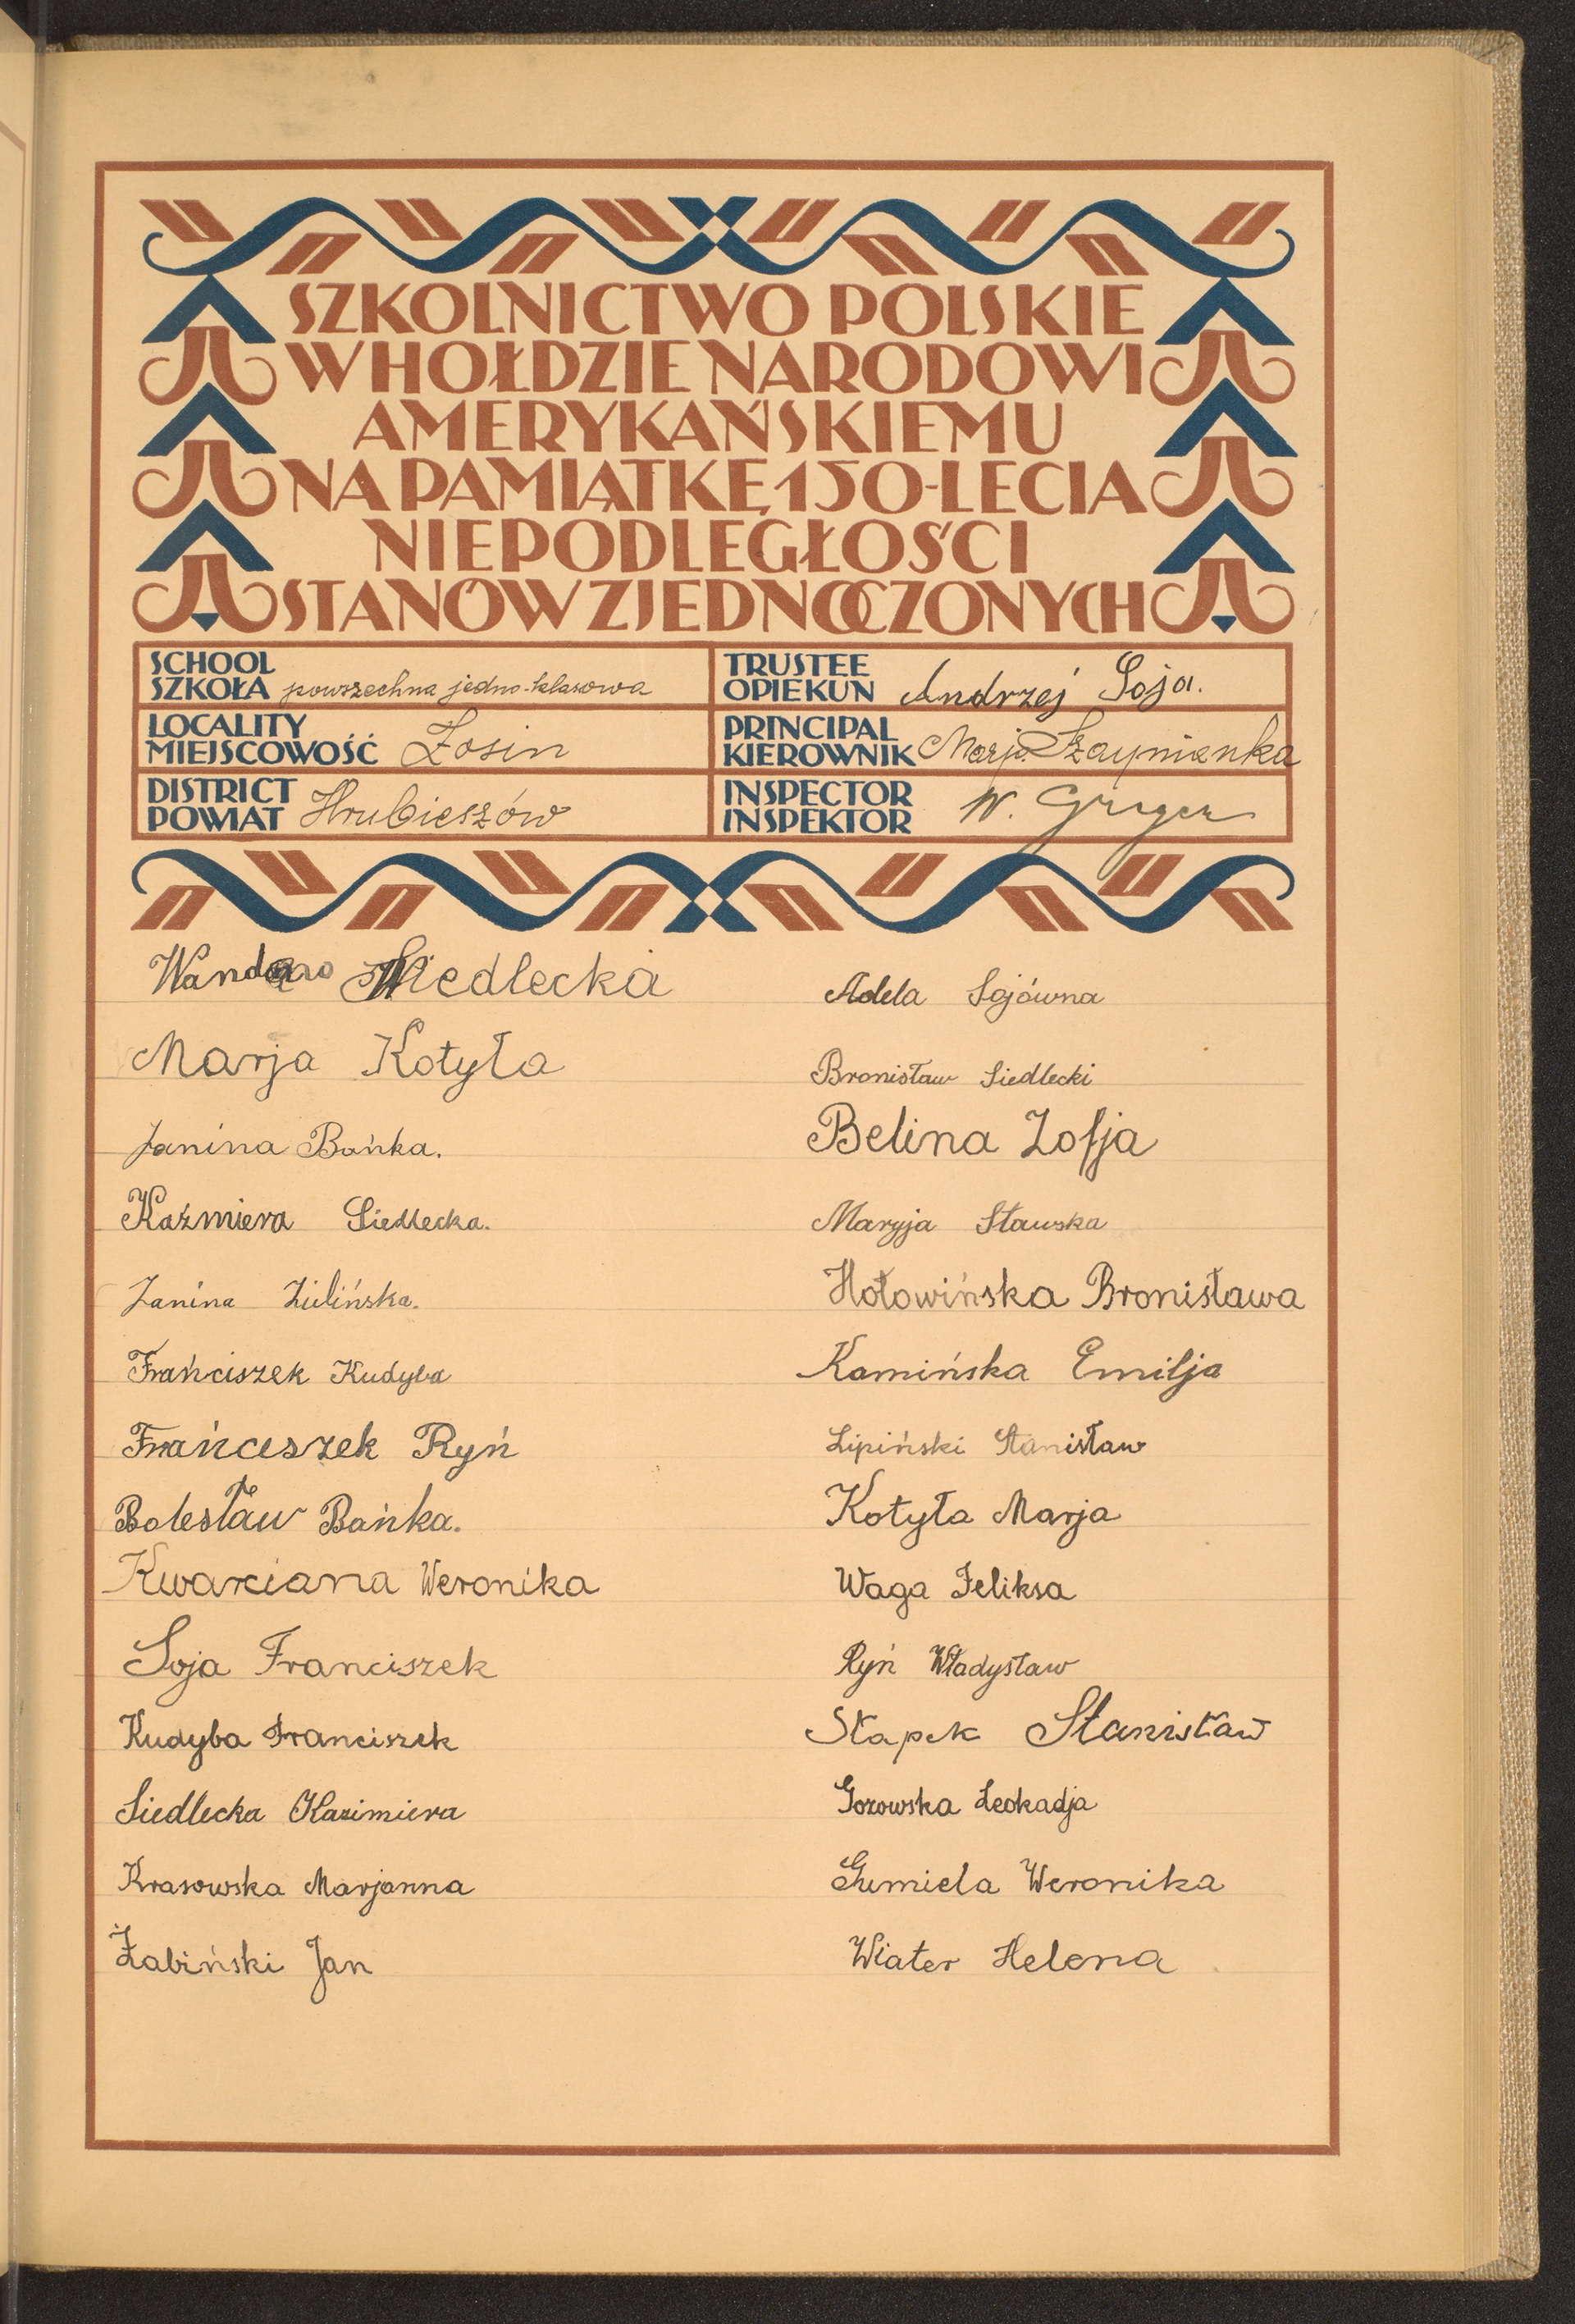 SZKOLNICTWO POLSKIE
W HOŁDZIE NARODOWI
AMERYKAŃSKIEMU
NA PAMIĄTKĘ 150-LECIA
NIEPODLEGŁOŚCI
STANÓW ZJEDNOCZONYCH
SCHOOL
SZKOŁA powszechna jedno-klasowa
TRUSTEE
OPIEKUN Andrzej Soja.
LOCALITY
MIEJSCOWOŚĆ Zosin
PRINCIPAL
KIEROWNIK Marja
DISTRICT
POWIAT Hrubieszów
INSPECTOR
INSPEKTOR W.
Wanda Siedlecka
Marja Kotyła
Janina Bańka.
Kaźmiera Siedlecka.
Janina Zielińska.
Frańciszek Kudyba
Frańciszek Ryń
Bolesław Bańka.
Kwarciana Weronika
Soja Franciszek
Kudyba Franciszek
Siedlecka Kazimiera
Krasowska Marjanna
Żabiński Jan
Adela Sojówna
Bronisław Siedlecki
Belina Zofja
Maryja Sławska
Hołowińska Bronisława
Kamińska Emilja
Lipiński Stanisław
Kotyła Marja
Waga Feliksa
Ryń Władysław
Słapek Stanisław
Gozowska Leokadja
Gumiela Weronika
Wiater Helena